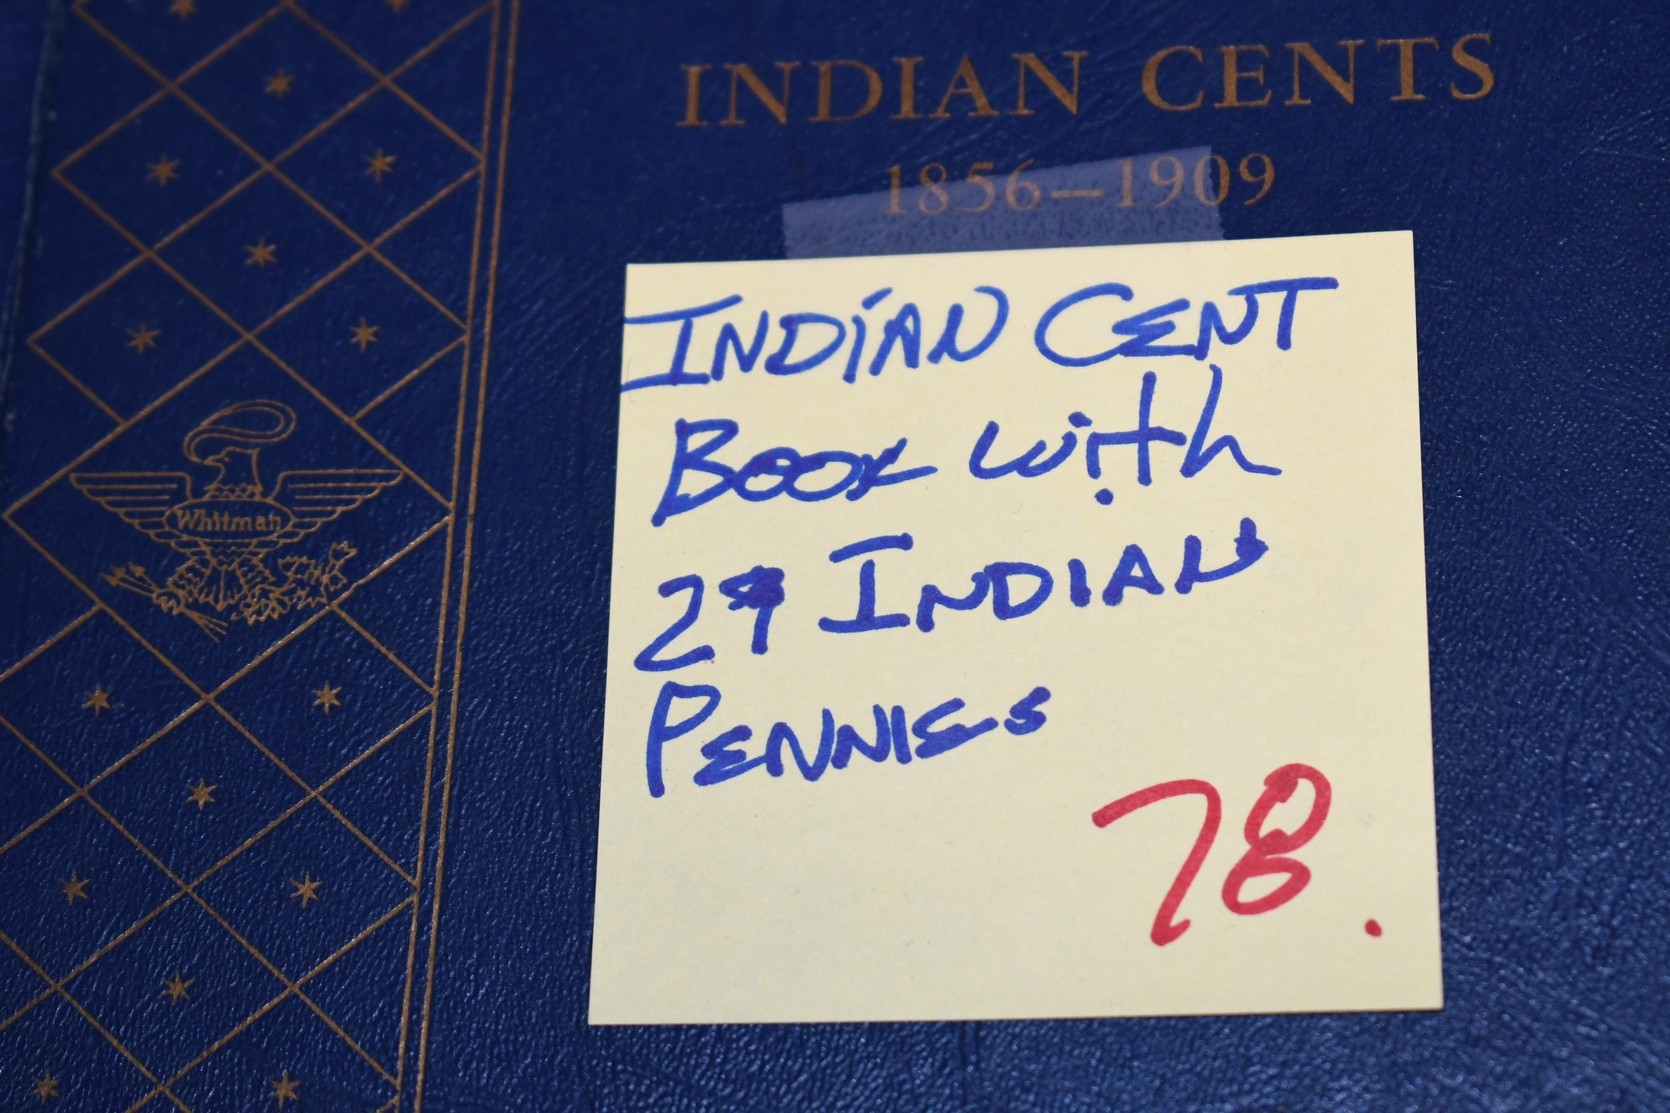 INDIAN CENTS
1856–1909
INDIAN CENT
BOOK with
29 INDIAN
PENNIES
78.
Whitman